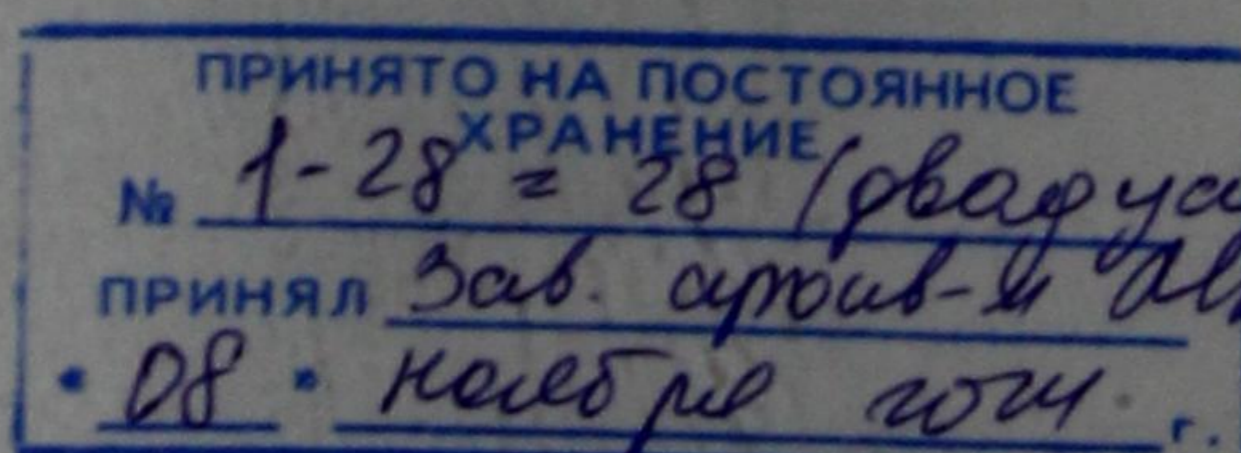 ПРИНЯТО НА ПОСТОЯННОЕ
ХРАНЕНИЕ
№ 1-28 = 28 (двадца
ПРИНЯЛ Зав. архив-м
"08" ноября 2024 г.